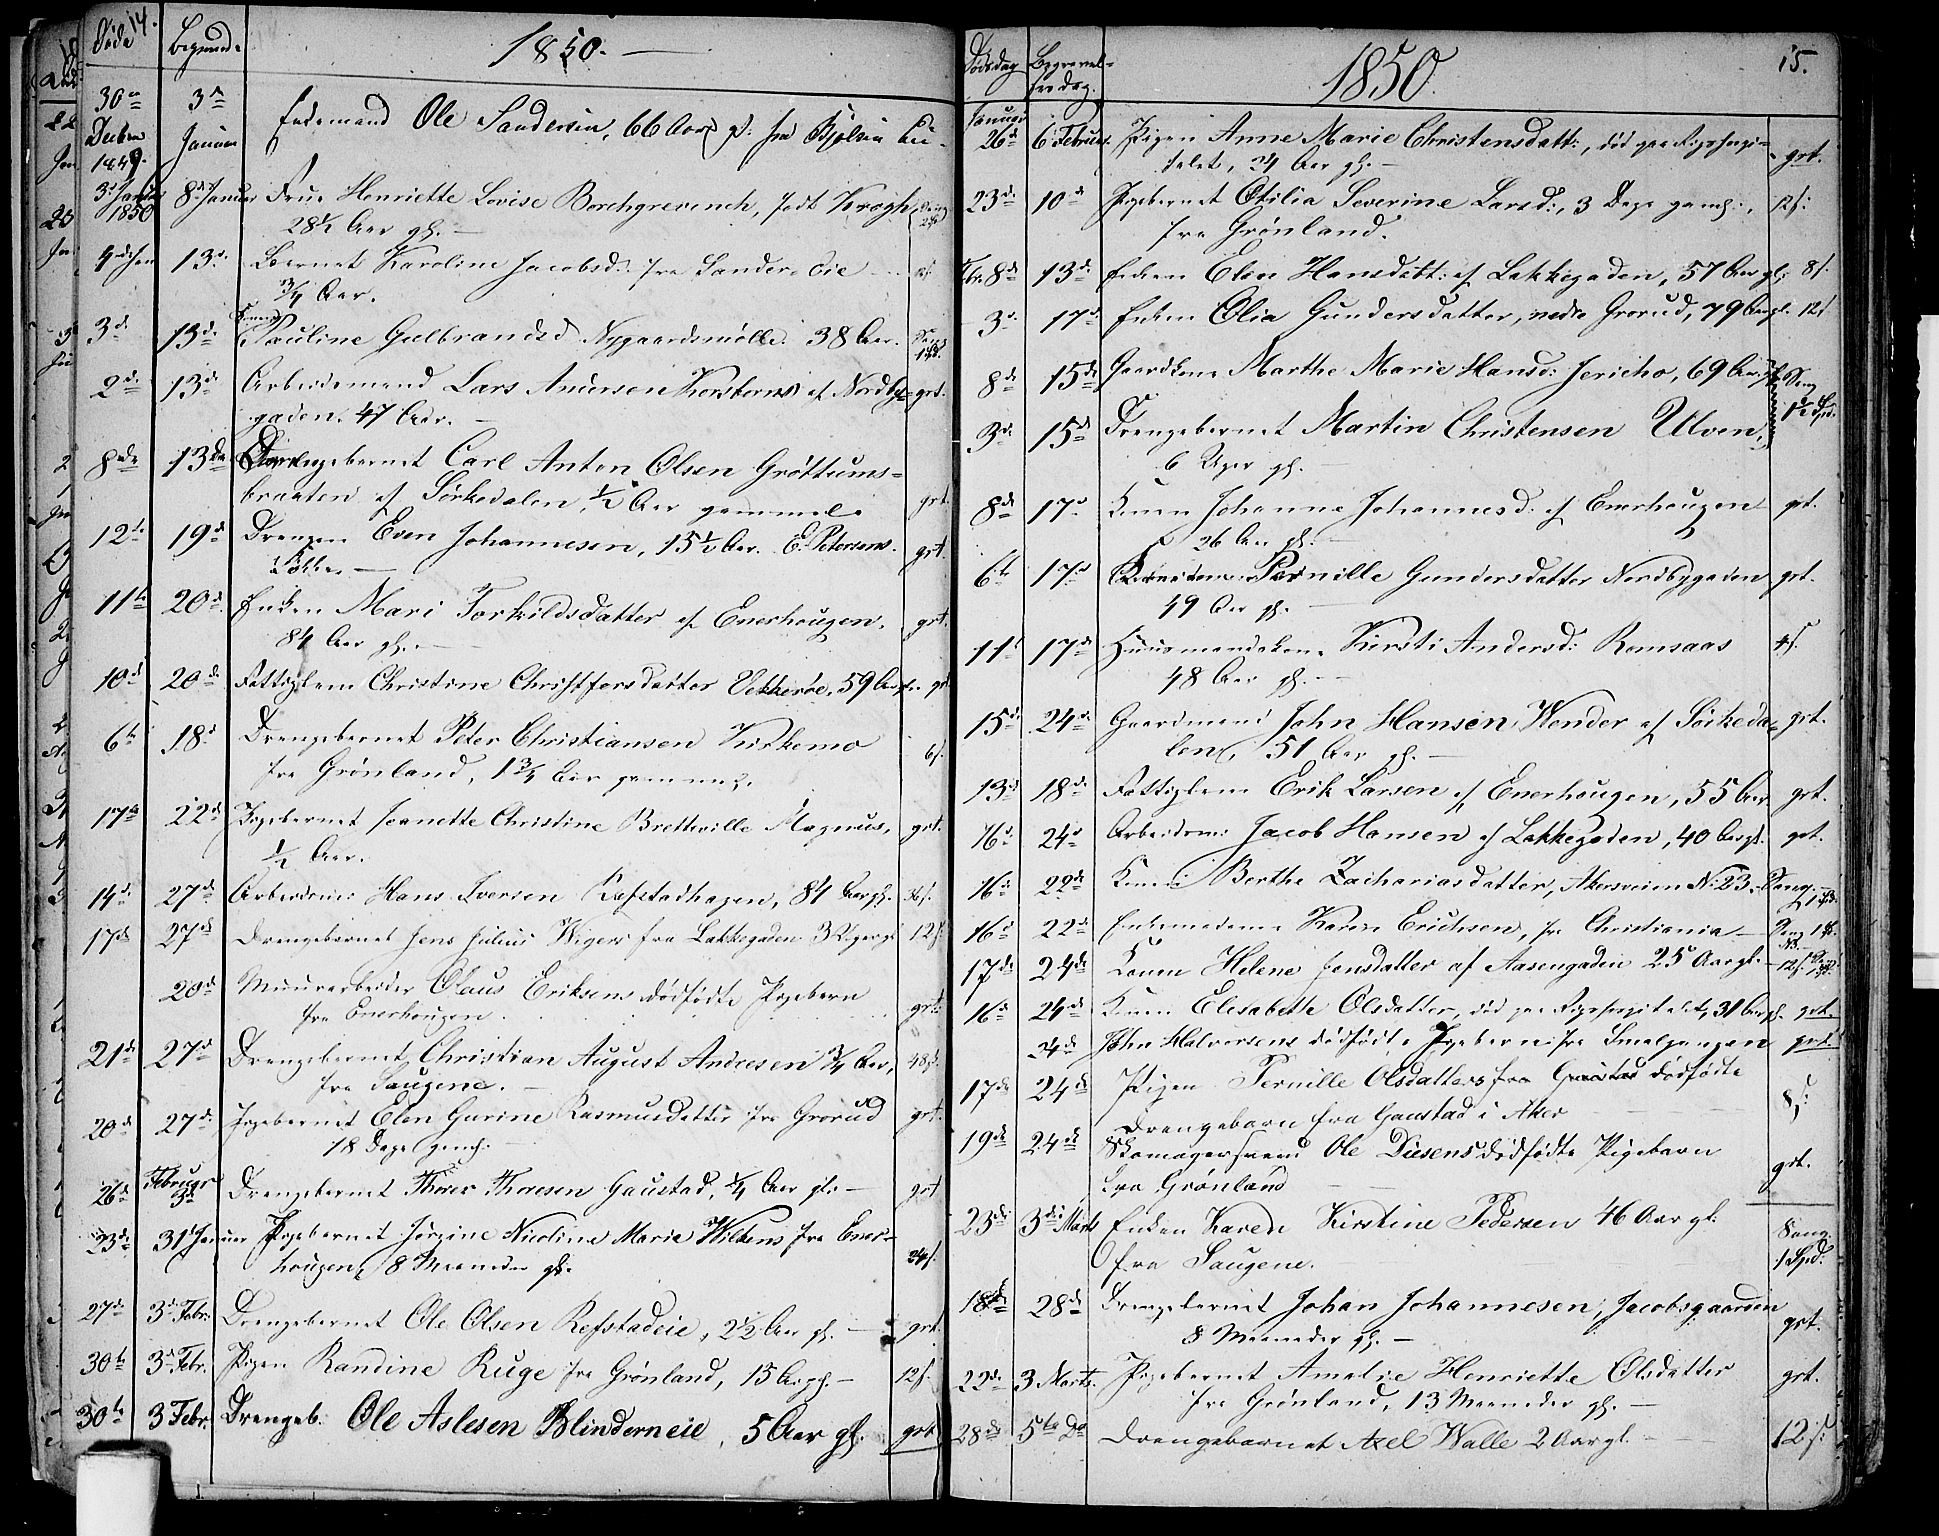 14.
Døde
Begravede
1850.
30te
Decbr
1849.
3de
Januar
Enkemand Ole Sandersen, 66 Aar gl: fra
3d Januar
1850
8de Januar
Frue Henriette Lovise Borchgrevinck, født Krogh,
28½ Aar gl.
13de
Barnet Karoline Jacobsd: fra Sandere Eie
¾ Aar.
3de
13de
Pauline Gulbrandsd Nygaardsmølle 38 Aar.
2de
13de
Arbeidsmand Lars Andersen Korsteens af Nordby- grt.
gaden. 47 Aar.
8de
13de
Drengebarnet Carl Anton Olsen Grøttums-
braaten af Sørkedalen, ½ Aar gammel. grt.
12te
19de
Drengen Even Johannesen, 15½ Aar. E. Petersens
Løkke grt.
11te
20de
Enken Mari Torkildsdatter af Enerhougen,
84 Aar gl. grt.
10de
20de
Fattiglem Christine Christoffersdatter Vekkerøe, 59 Aar gl. grt
6te
18de
Drengebarnet Peter Christiansen Kirkemo
fra Grønland, 1¾ Aar gammel. 6s.
17de
22de
Pigebarnet Jeanette Christine Bretteville Magnus, grt.
½ Aar.
14de
27de
Arbeidsm: Hans Iversen Refstadhagen, 84 Aar gl. 36s.
17de
27de
Drengebarnet Jens Julius Wiger fra Lakkegaden 3 Uger gl 12s.
20de
Muurarbeider Olaus Eriksens dødfødte Pigebarn
fra Enerhougen grt.
21de
27de
Drengebarnet Christian August Andresen ¾ Aar, 48s.
fra Saugene.
20de
27de
Pigebarnet Elen Gurine Rasmusdatter fra Grorud grt.
18 Dage gamel.
26de
Februar
3de
Drengebarnet Thorer Thoresen Gaustad, ¼ Aar gl. grt
23de
31 Januar
Pigebarnet Jørgine Nicoline Marie Wilkens fra Ener-
hougen, 8 Maaneder gl. 24s.
27de
3de Febr:
Drengebarnet Ole Olsen Refstadeie, 2½ Aar gl. grt.
30te
3de Febr.
Pigen Randine Ruge fra Grønland, 15 Aar gl. 12s.
30te
3 Febr.
Drengeb. Ole Aslesen Blinderneie, 5 Aar gl. grt
15.
Dødsdag
Begravel-
sesdag.
1850.
Januar
26de
6 Februar
Pigen Anne Marie Christensdatt:, død paa Rigshospi-
talet, 24 Aar gl. grt.
23de
10de
Pigebarnet Otilia Severine Larsd:, 3 Dage gamel., 12s:
fra Grønland.
Febr. 8de
13de
Enken Elen Hansdatt: af Lakkegaden, 57 Aar gl. 8s.
3de
17de
Enken Olia Gundersdatter, nedre Grorud, 79 Aar gl. 12s
8de
15de
Gaardkone Marthe Marie Hansd: Jericho, 69 Aar Seng
3de
15de
Drengebarnet Martin Christensen Ulven,
6 Uger gl.
8de
17de
Konen Johanne Johannesd. af Enerhougen grt.
26 Aar gl.
6te
17de
Pernille Gundersdatter Nordbygaden grt.
49 Aar gl.
11te
17de
Huusmandskone Kirsti Andersd: Romsaas 4s.
48 Aar gl.
15de
24de
Gaardmand John Hansen Wender af Sørkeda- grt.
len, 51 Aar gl.
13de
18de
Fattiglem Erik Larsen af Enerhougen, 55 Aar grt.
16de
24de
Arbeidsm: Jacob Hansen af Lakkegaden, 40 Aar gl. grt.
16de
22de
Konen Berthe Zachariasdatter, Akersveien No 23.
16de
22de
Enkemadame Karen Erichsen, fra Christiania
17de
24de
Konen Helene Jensdatter af Aasengaden 25 Aar gl.
16de
24de
Konen Elisabethe Olsdatter, død paa Rigshospitalet, 31 Aar gl. grt.
24de
John Halvorsens dødfødte Pigebarn fra Smalgangen grt
17de
24de
Pigen Pernille Olsdatters fra Gaustad dødfødte
Drengebarn fra Gaustad i Aker 8s:
19de
24de
Skomagersvend Ole Diesens dødfødte Pigebarn
fra Grønland grt.
23de
3de Marts
Enken Karen Kirstine Pedersen 46 Aar gl.
fra Saugene. Seng 1 Spd:
18de
28de
Drengebarnet Johan Johannesen, Jacobsgaarden
8 Maaneder gl. grt.
22de
3 Marts.
Pigebarnet Amalie Henriette Olsdatter
fra Grønland, 13 Maaneder gl. grt.
28de
5te Do
Drengebarnet Axel Walle 2 Aar gl. 12s: